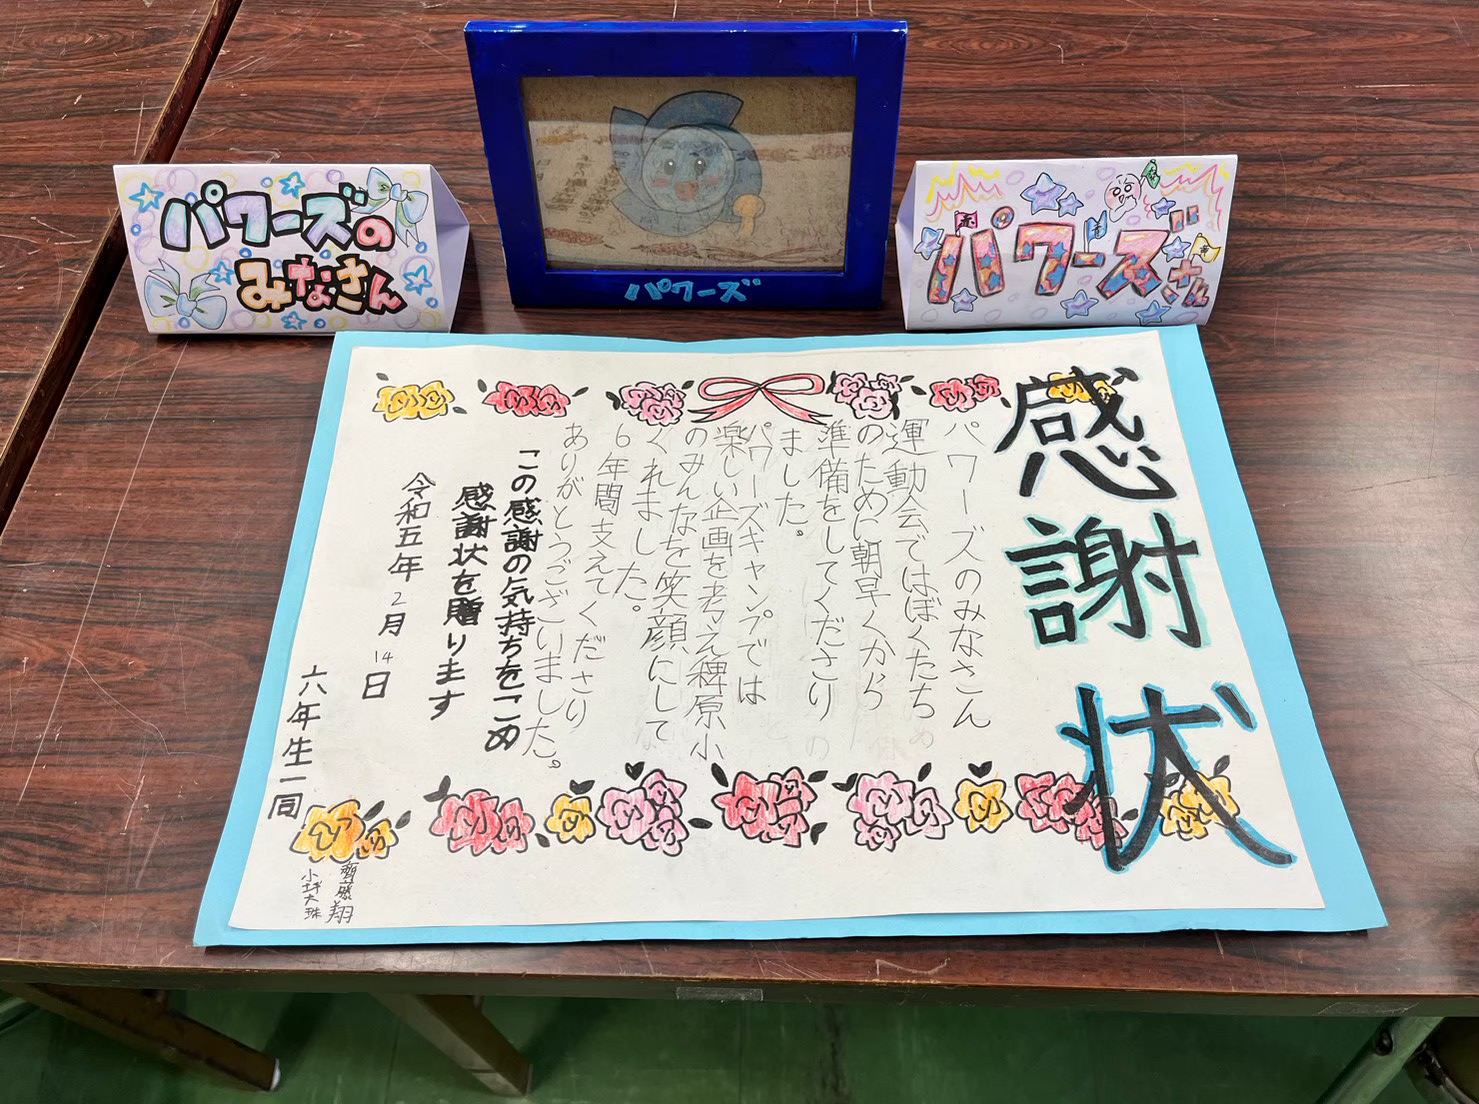 パワーズの
みなさん
パワーズ
パワーズ
さん
感謝状
パワーズのみなさん
運動会ではぼくたち
のために朝早くから
準備をしてくださり
ました。
パワーズキャンプでは
楽しい企画を考え稗原小
のみんなを笑顔にして
くれました。
6年間支えてくださり
ありがとうございました。
この感謝の気持ちをこめ
感謝状を贈ります
令和五年2月14日
六年生一同